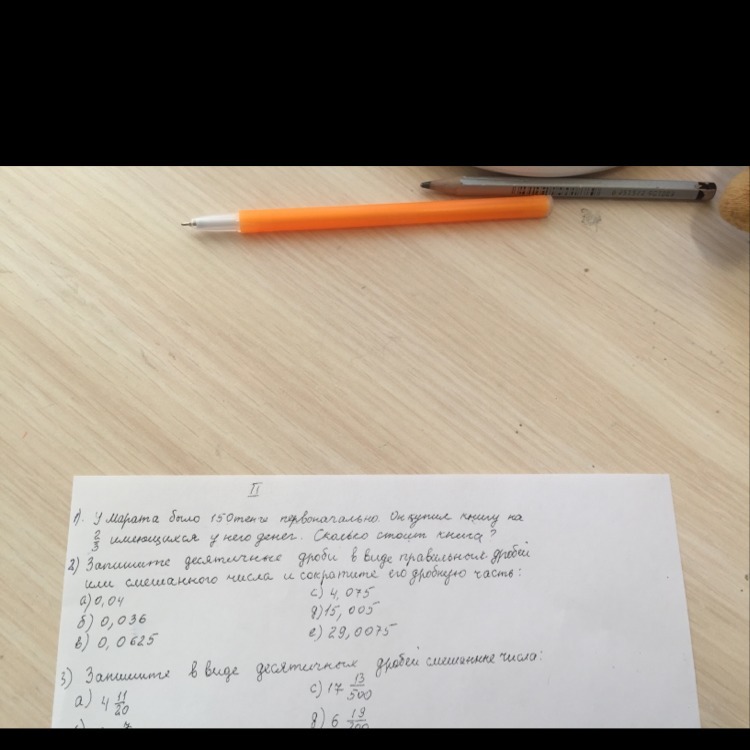 II
1). У Марата было 150тенге первоначально. Он купил книгу на
2/3 имеющихся у него денег. Сколько стоит книга?
2) Запишите десятичные дроби в виде правильных дробей
или смешанного числа и сократите его дробную часть:
а) 0,04 с) 4,075
б) 0,036 д) 15,005
в) 0,0625 е) 29,0075
3) Запишите в виде десятичных дробей смешанные числа:
а) 4 11/20 с) 17 13/500
д) 6 19/200